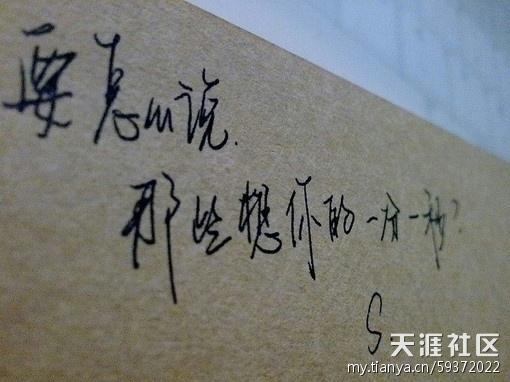 要怎么说.
那些想你的一分一秒?
S
天涯社区
my.tianya.cn/59372022